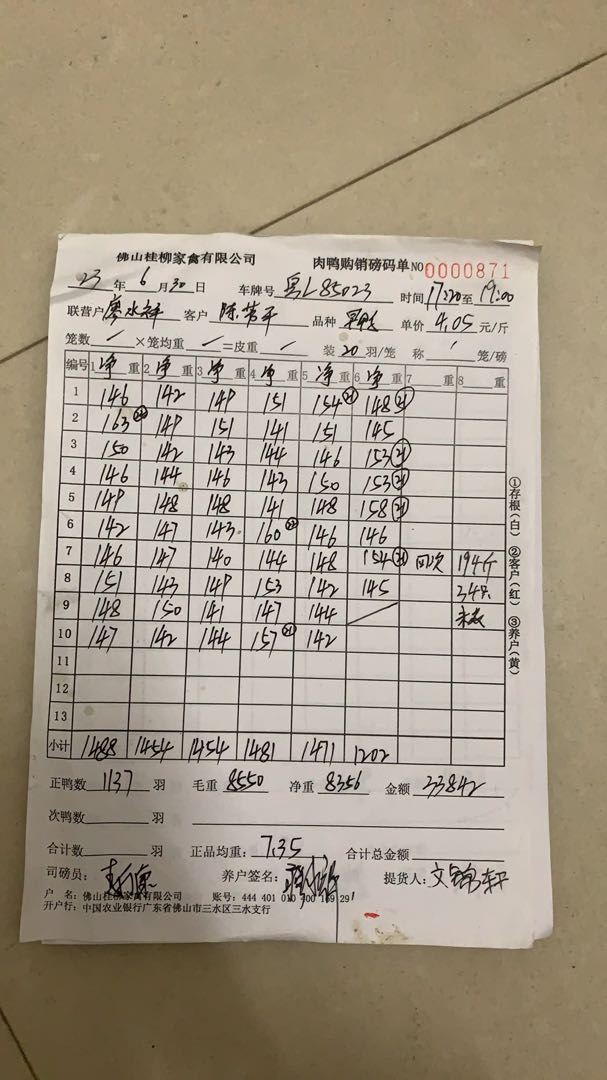 佛山桂柳家禽有限公司 肉鸭购销磅码单 NO 0000871
23 年 6 月 30 日 车牌号 粤L85023 时间 17:20 至 19:00
联营户 廖水祥 客户 陈芳平 品种 单价 4.05 元/斤
笼数 / ×笼均重 / =皮重 / 装 20 羽/笼 称 / 笼/磅
编号 1 净 重 2 净 重 3 净 重 4 净 重 5 净 重 6 净 重 7 重 8 重
1 146 142 149 151 154 (21) 148 (21)
2 163 149 151 141 151 145
3 150 142 143 144 146 153 (21)
4 146 144 146 143 150 153 (21)
5 149 148 148 141 148 158 (21)
6 142 147 143 160 146 146
7 146 147 140 144 148 154 (21) 回次 194斤
8 151 143 149 153 142 145 34只
9 148 150 141 147 144 /
10 147 142 144 157 (21) 142
11
12
13
小计 1488 1454 1454 1481 1471 1202
①存根(白) ②客户(红) ③养户(黄)
正鸭数 1137 羽 毛重 8550 净重 8356 金额 33842
次鸭数 羽
合计数 羽 正品均重: 7.35 合计总金额
司磅员: 养户签名: 提货人: 文锦轩
户 名: 佛山桂柳家禽有限公司 账号: 444 401 010 400 169 291
开户行: 中国农业银行广东省佛山市三水区三水支行